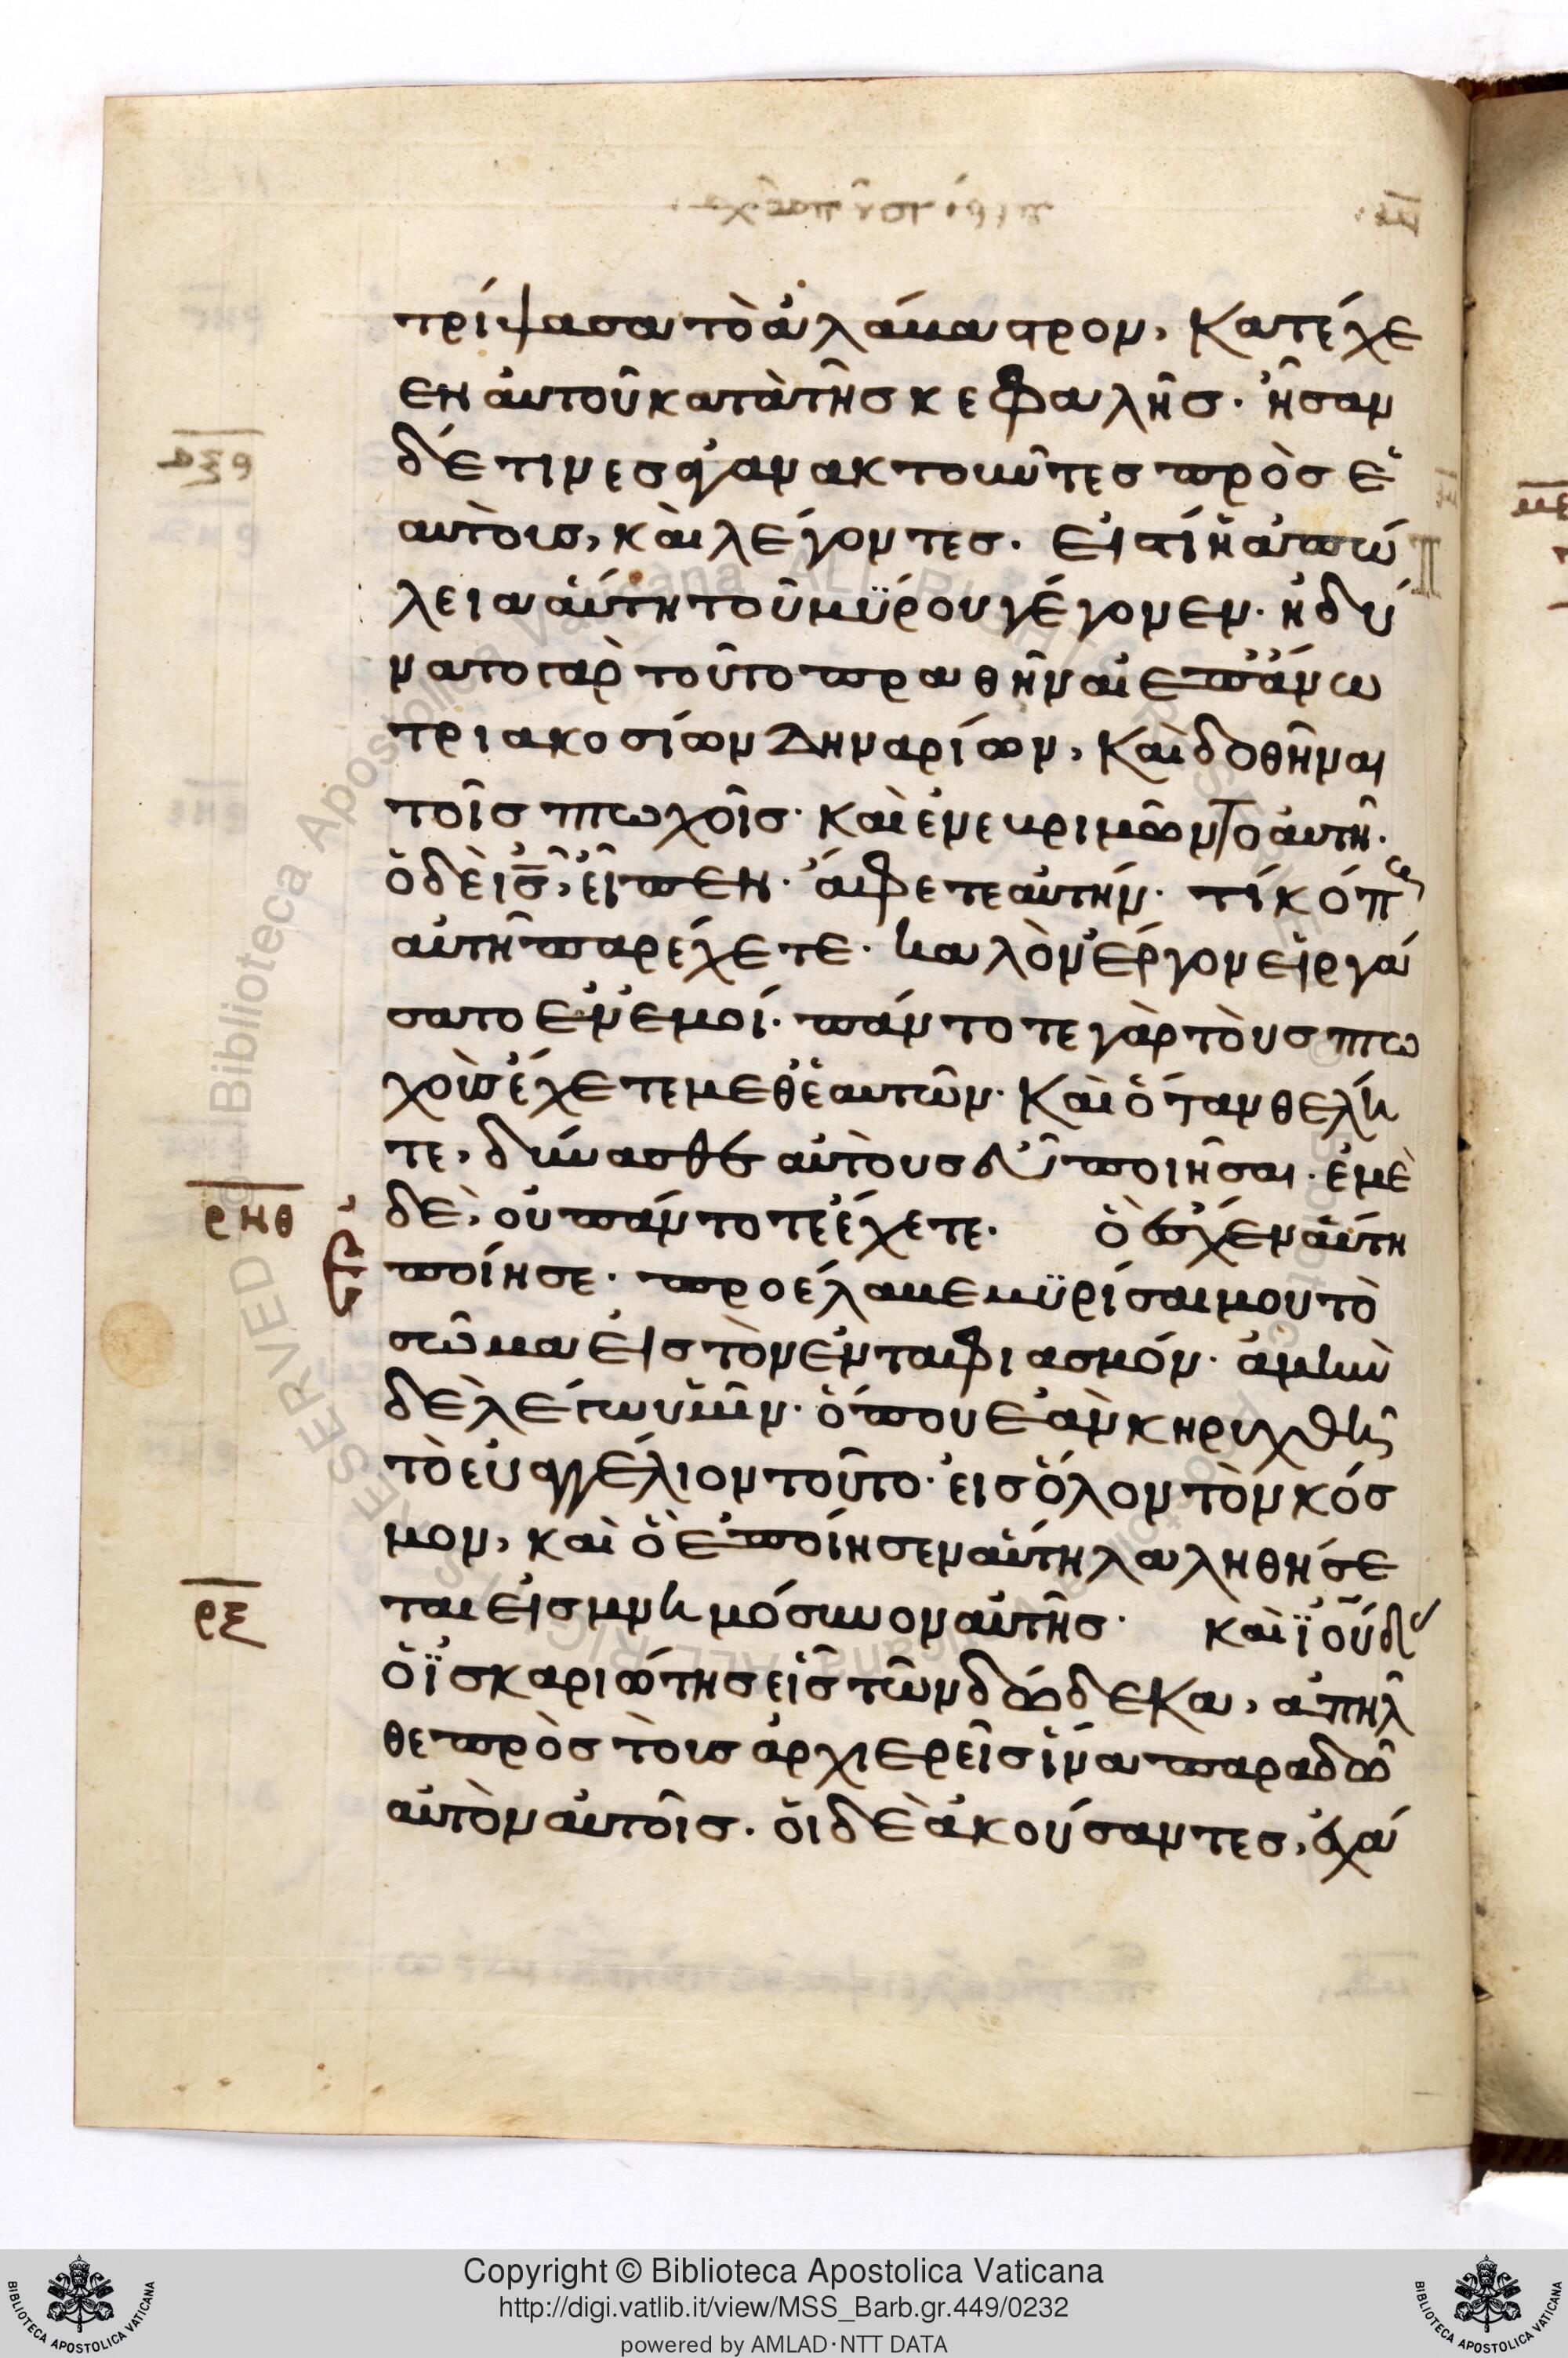 τρίψασα τὸ ἀλάβαστρον, κατέχε
εν αὐτοῦ κατὰ τῆς κεφαλῆς· ἦσαν
δέ τινες ἀγανακτοῦντες πρὸς ἑ
αυτοὺς, καὶ λέγοντες· εἰς τί ἡ ἀπώ
λεια αὕτη τοῦ μύρου γέγονεν· ἠδύ
νατο γὰρ τοῦτο πραθῆναι ἐπάνω
τριακοσίων δηναρίων, καὶ δοθῆναι
τοῖς πτωχοῖς· καὶ ἐνεβριμῶντο αὐτῆ·
ὁ δὲ ι̅ς̅, εἶπεν· ἄφετε αὐτήν· τί κόπους
αὐτῆ παρέχετε· καλὸν ἔργον εἰργά
σατο ἐν ἐμοί· πάντοτε γὰρ τοὺς πτω
χοὺς ἔχετε μεθ ἑαυτῶν· καὶ ὅταν θέλη
τε, δύνασθε αὐτοὺς εὖ ποιῆσαι· ἐμὲ
ρ̅ν̅θ̅ δὲ, οὐ πάντοτε ἔχετε· ὃ ἔσχεν αὕτη
ποίησε· προέλαβε μυρίσαι μου τὸ
σῶμα εἰς τὸν ἐνταφιασμόν· ἀμὴν
δὲ λέγω ὑμῖν· ὅπου ἐὰν κηρυχθῆ
τὸ εὐαγγέλιον τοῦτο· εἰς ὅλον τὸν κόσ
μον, καὶ ὃ ἐποίησεν αὕτη λαληθήσε
ρ̅ξ̅ ται εἰς μνημόσυνον αὐτῆς· καὶ ϊούδας
ὁ ϊσκαριώτης εἷς τῶν δώδεκα, ἀπῆλ
θε πρὸς τοὺς ἀρχιερεῖς ἵνα παραδῶ
αὐτὸν αὐτοῖς· οἱ δὲ ἀκούσαντες, ἐχά
Copyright © Biblioteca Apostolica Vaticana
http://digi.vatlib.it/view/MSS_Barb.gr.449/0232
powered by AMLAD·NTT DATA